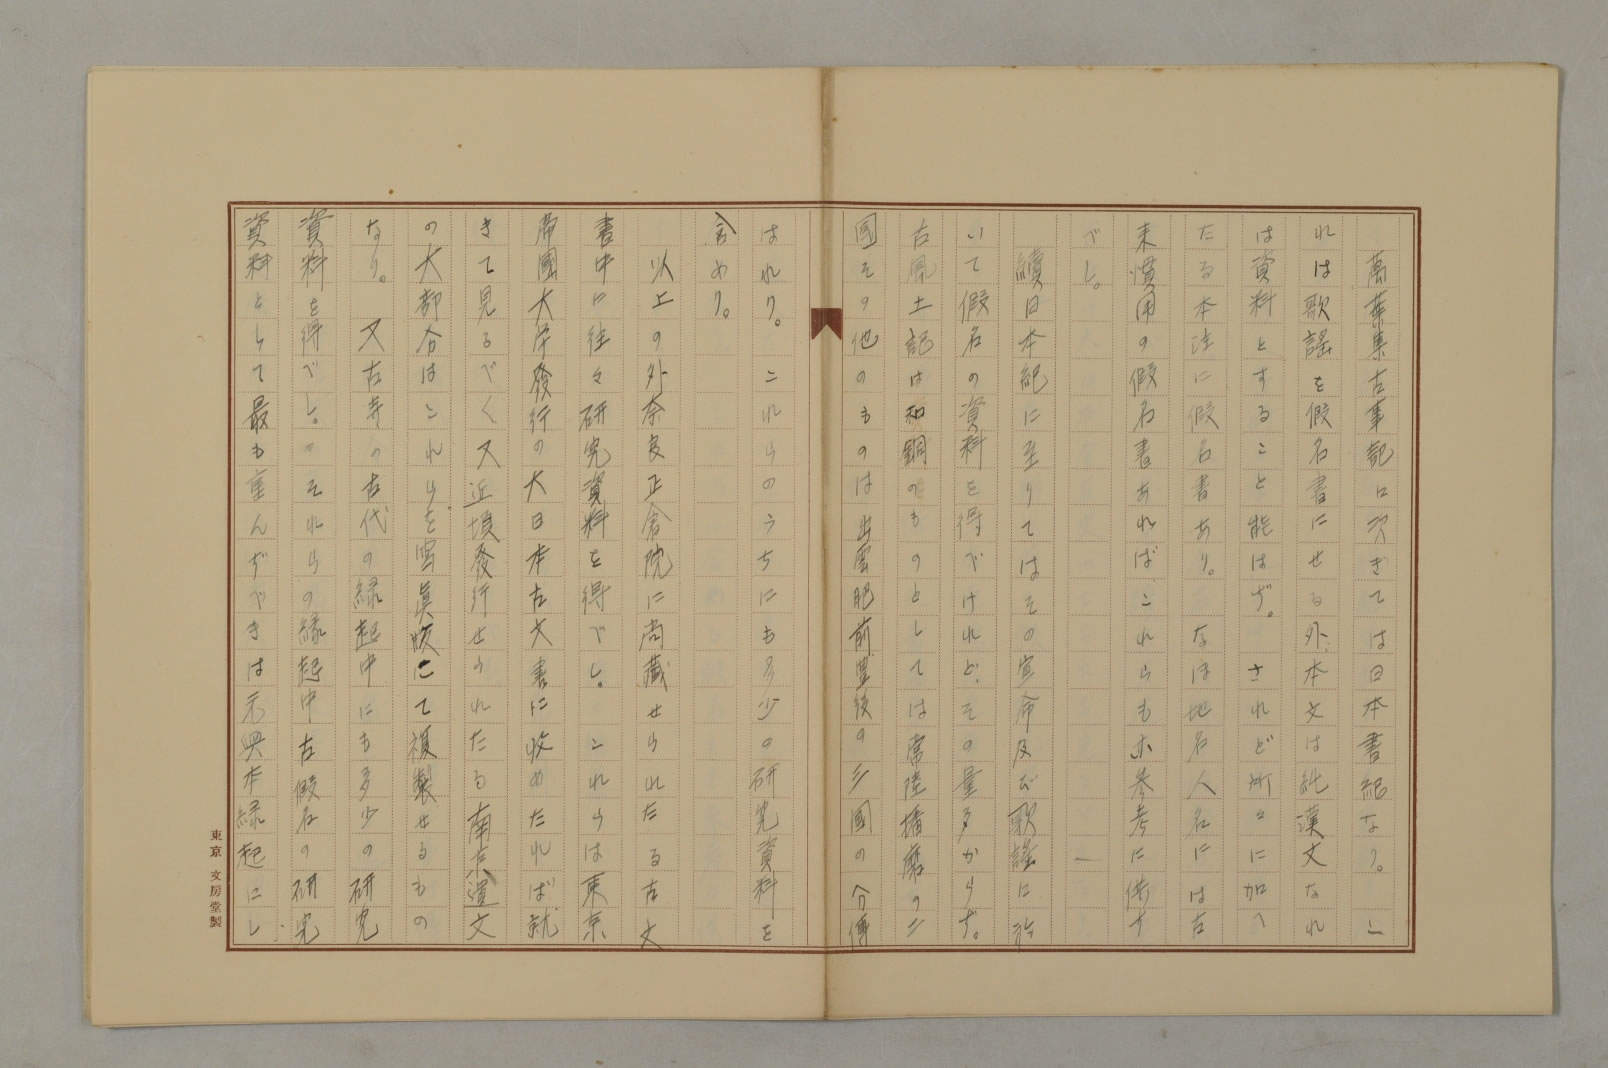 萬葉集古事記に次ぎては日本書紀なり。こ
れは歌謡を假名書にせる外、本文は純漢文なれ
は資料とすること能はず。されど所々に加へ
たる本注に假名書あり。なほ地名人名には古
来慣用の假名書あればこれらも亦参考に供す
べし。
續日本紀に至りてはその宣命及び歌謡に於
いて假名の資料を得べけれど、その量多からず。
古風土記は和銅のものとしては常陸播磨の二
國その他のものは出雲肥前豊後の三國の今傳
はれり。これらのうちにも多少の研究資料を
含めり。
以上の外奈良正倉院に尚藏せられたる古文
書中に往々研究資料を得べし。これらは東京
帝國大学發行の大日本古文書に收めたれば、就
きて見るべく又近頃發行せられたる南京遺文
の大部分はこれらを寫眞版にて複製せるもの
なり。又古寺の古代の縁起中にも多少の研究
資料を得べし。それらの縁起中古假名の研究
資料として最も重んずべきは元興寺縁起にし
東京 文房堂製